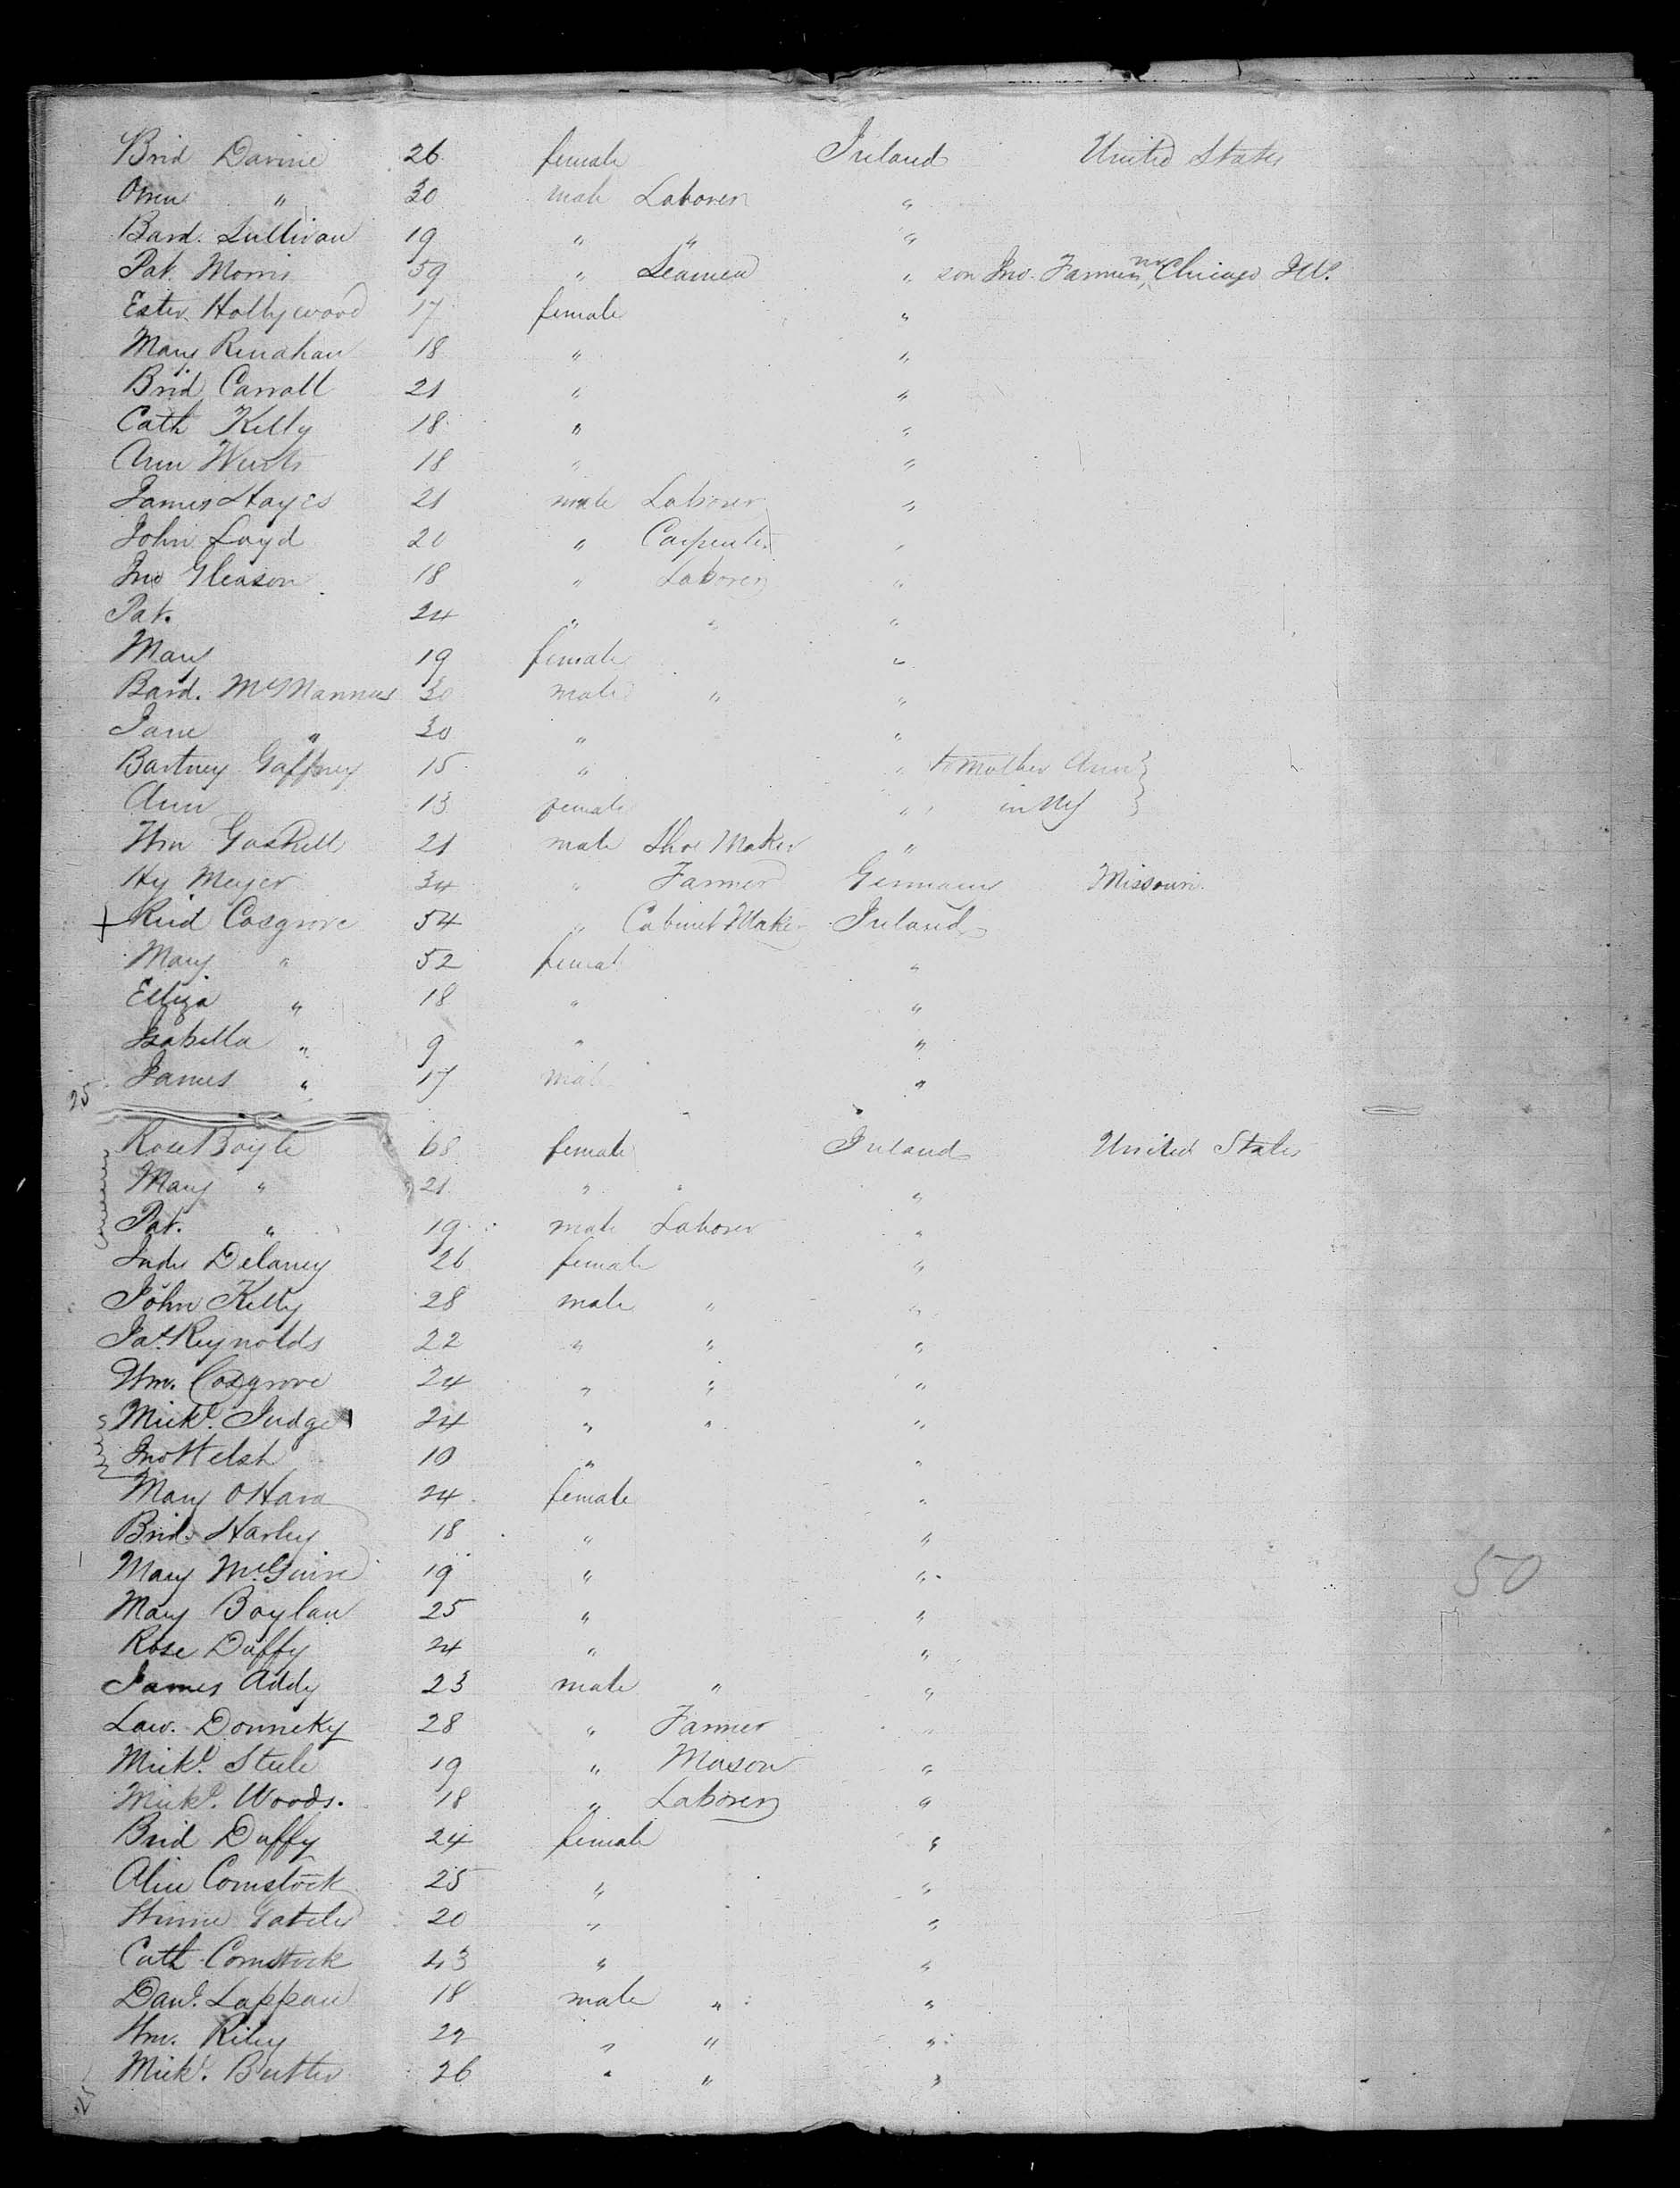 Brid Davine 26 female Ireland United States
Owen " 30 male Laborer "
Bard. Sullivan 19 " " "
Pat. Morris 59 " Seaman " son Jno. Farmer, nr Chicago Ill.
Ester Hollywood 17 female "
Mary Renahan 18 " "
Brid Carroll 21 " "
Cath Kelly 18 " "
Ann 18 " "
James Hayes 21 male Laborer "
John Loyd 20 " Carpenter "
Jno Gleason 18 " Laborer "
Pat. 24 " " "
Mary 19 female "
Bard. McMannus 30 male " "
Jane " 30 " "
Bartney Gaffney 15 " " to Mother Ann }
Ann 13 female " in NY }
Wm Gaskell 21 male Shoe Maker "
Hy Meyer 34 " Farmer Germany Missouri.
+ Cosgrove 54 " Cabinet Maker Ireland
Mary " 52 female "
Elliza " 18 " "
Isabella " 9 " "
James " 17 male "
25
Rose Boyle 68 female Ireland United States
Mary " 21 " " "
Pat. " 19 male Laborer "
Judy Delaney 26 female "
John Kelly 28 male " "
Jas. Reynolds 22 " " "
Wm. Cosgrove 24 " " "
Mickl. Judge 24 " " "
Jno Welsh 10 " "
Mary OHara 24 female "
Brid. Harley 18 " "
Mary McGuire 19 " "
50
Mary Boylan 25 " "
Rose Duffy 24 " "
James Addy 23 male " "
Law. Donneky 28 " Farmer "
Mickl. Steele 19 " Mason "
Mickl. Woods. 18 " Laborer "
Brid Duffy 24 female "
Alice Comstock 25 " "
20 " "
Cath Comstock 43 " "
Danl. Lappan 18 male " "
Wm. Riley 22 " " "
Mickl. Butler 26 " " "
25